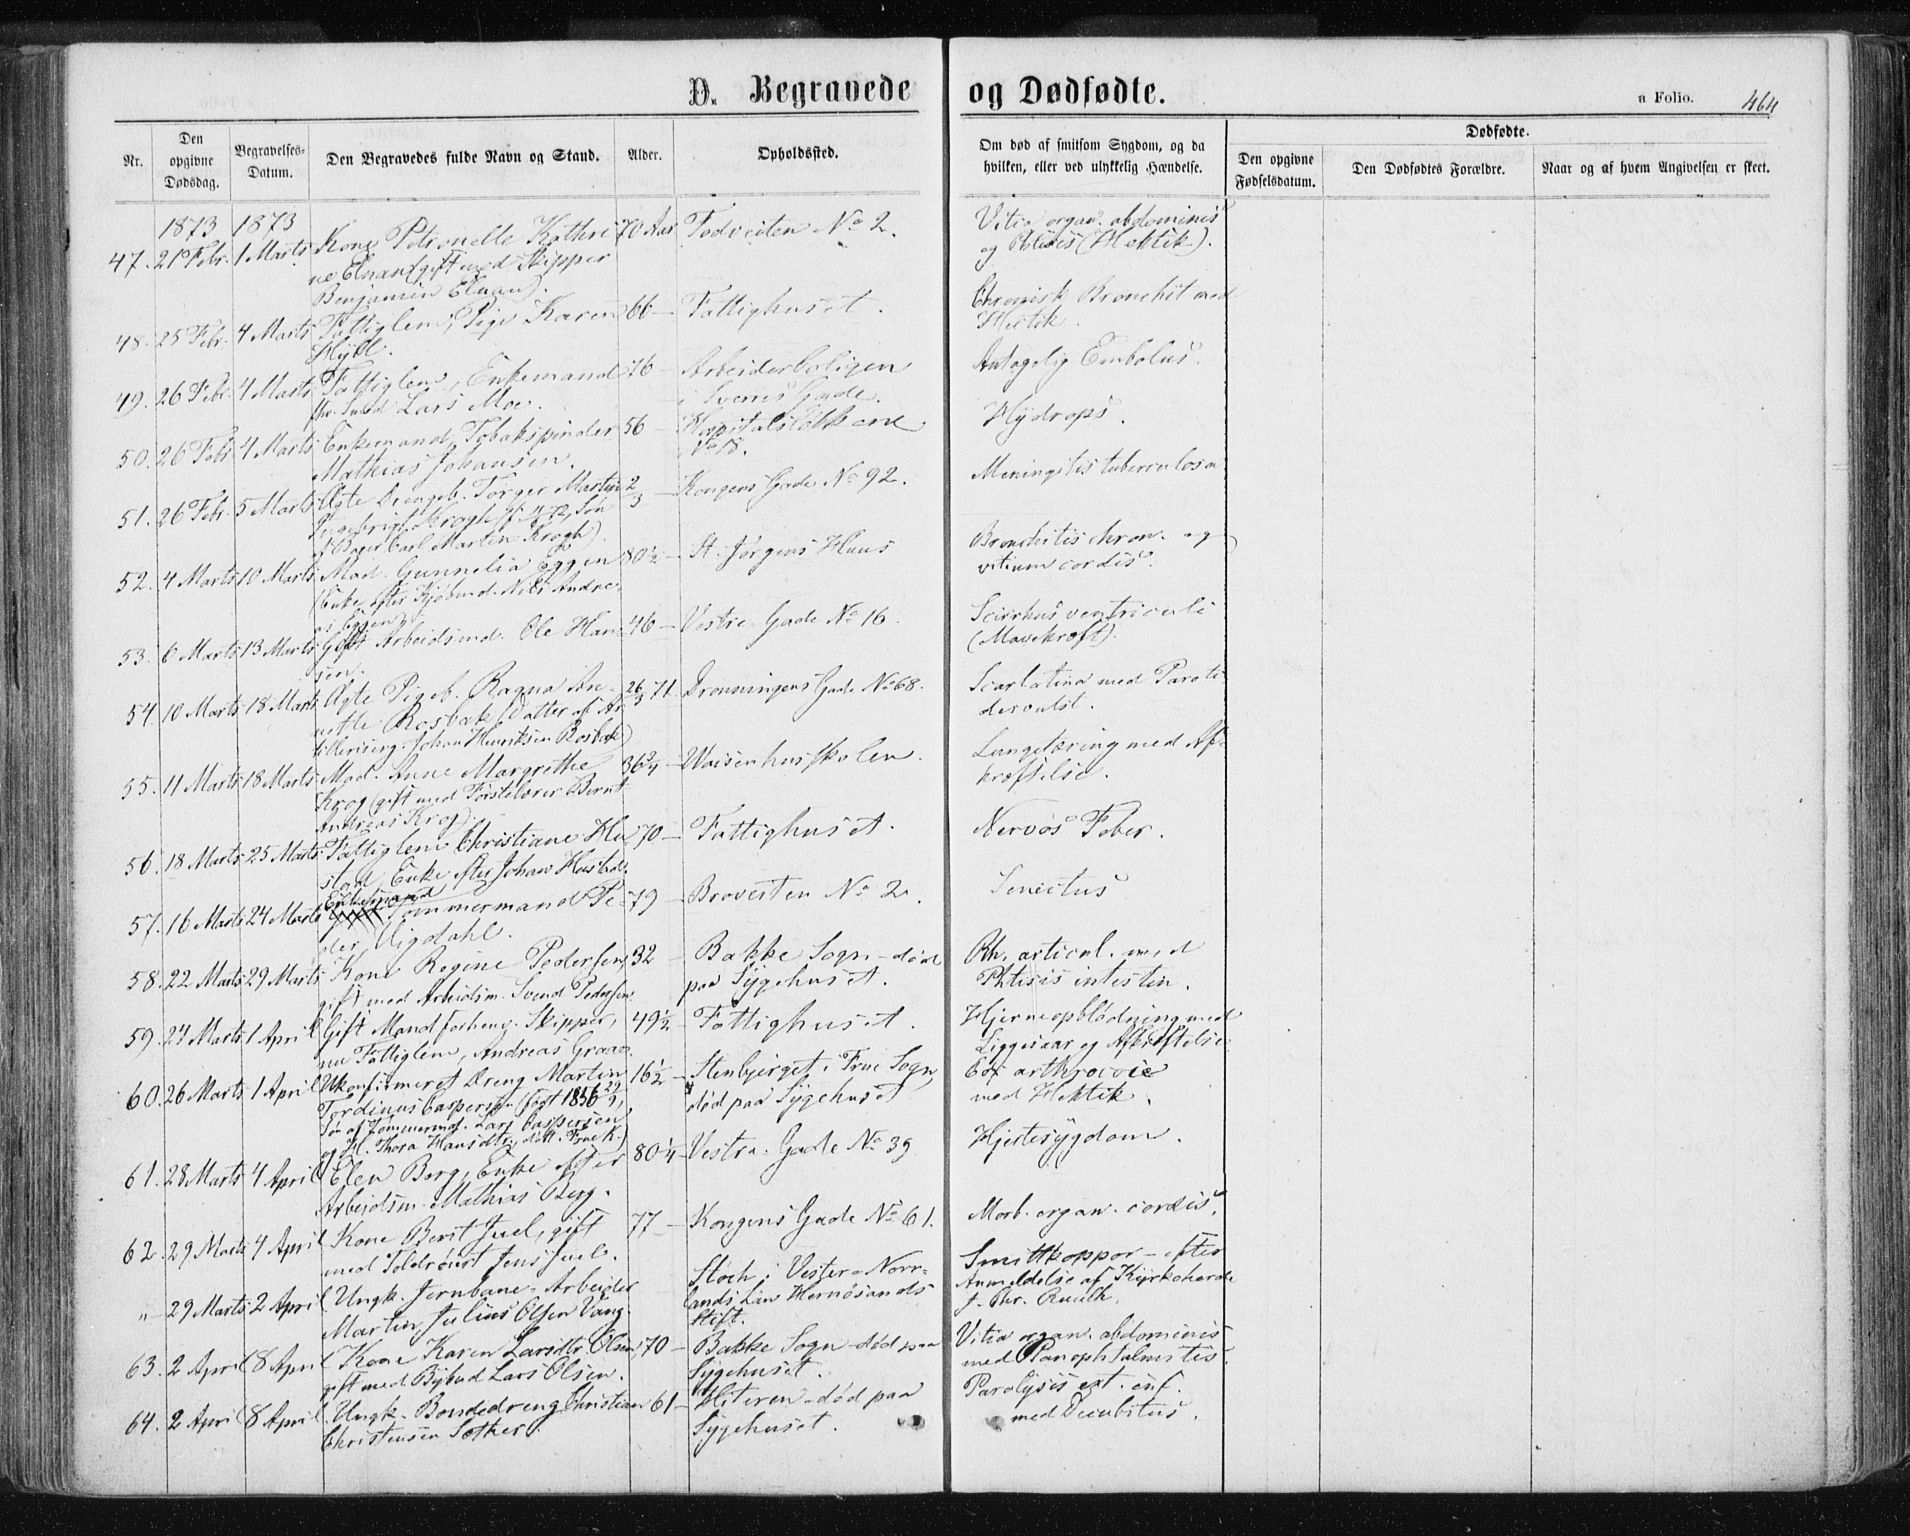 D. Begravede og Dødfødte.
a Folio. 464
Nr.
Den opgivne Dødsdag.
Begravelses-Datum.
Den Begravedes fulde Navn og Stand.
Alder.
Opholdssted.
Om død af smitsom Sygdom, og da hvilken, eller ved ulykkelig Hændelse.
Dødfødte.
Den opgivne Fødselsdatum.
Den Dødfødtes Forældre.
Naar og af hvem Angivelsen er skeet.
1873 1873
47. 21 Febr. 1 Marts Kone Petronelle Kathri- 70 Aar Fodveiten No 2. Vitia organ. abdominis
ne (gift med Skipper og Phtisis (Hektik).
Benjamin
48. 25 Febr. 4 Marts Fattiglem, Pige Karen 66 — Fattighuset. Chronisk Bronchit med
Hektik.
49. 26 Febr. 4 Marts Fattiglem, Enkemand 76 — Arbeiderboligen Antagelig Embolus.
Lars Moe. i Sverres Gade.
50. 26 Febr. 4 Marts Enkemand, Tobakspinder 56 — Hospitalsløkkerne Hydrops.
Mathias Johansen. No 18.
51. 26 Febr. 5 Marts Ægte Drengeb. Torger Martin 2/3 — Kongens Gade No 92. Meningitis tuberculosa
Ingebrigt Krogh Søn
af Bager Carl Martin Krogh).
52. 4 Marts 10 Marts Mad. Gunnelia Eggen 80 1/2 — St. Jørgens Huus Bronchitis chron. og
(Enke efter Kjøbmd. Nils Andre- vitium cordis.
as Eggen)
53. 6 Marts 13 Marts Gift Arbeidsmd. Ole Han- 46 — Vestre Gade No 16. Scirrhus ventriculi
sen. (Mavekræft).
54. 10 Marts 18 Marts Ægte Pigeb. Ragna An- 26/3 71. Dronningens Gade No 68. Scarlatina med Paroti-
nette Rosbak (Datter af Ar-
tilleriserg. Johan Henriksen Rosbak)
55. 11 Marts 18 Marts Mad. Anne Margrethe 36 3/4 — Waisenhusskolen. Lungetæring med Af-
Krog (gift med Førstelærer Bernt kræftelse.
Andreas Krog).
56. 18 Marts 25 Marts Fattiglem Christiane Hu- 70 — Fattighuset. Nervøs Feber.
stad, Enke efter Johan Hustad.
Enkemand
57. 16 Marts 24 Marts Tømmermand Pe- 79 — Broveiten No 2. Senectus
der Vigdahl.
58. 22 Marts 29 Marts Kone Regine Pedersen, 32 — Bakke Sogn - død Rh. articul. med
gift med Arbeidsm. Svend Pedersen paa Sygehuset. Phtisis intestin.
59. 24 Marts 1 April Gift Mand forhenv. Skipper, 49 1/2 — Fattighuset. Hjerneopblødning med
nu Fattiglem, Andreas Graae. Liggesaar og Afkræftelse
60. 26 Marts 1 April Ukonfirmeret Dreng Martin 16 1/2 — Stenbjerget i Frue Sogn, Cox arthrocace
Tordinus Caspersen (født 1856 29/9, død paa Sygehuset med Hektik.
Søn af Tømmermd. Lars Caspersen
og H. Thora Hansdtr, døbt Frue K.)
61. 28 Marts 4 April Elen Berg, Enke efter 80 1/4 — Vestre Gade No 39 Hjertesygdom.
Arbeidsm. Mathias Berg.
62. 29 Marts 4 April Kone Berit Juel, gift 77 — Kongens Gade No 61. Morb. organ. cordis.
med Toldrorist Jens Juel.
„ 29 Marts 2 April Ungk. Jernbane-Arbeider Stöch i Vester-Norr- Smittkoppor - efter
Martin Julius Olsen Vang. lands Län Hernösands Anmeldelse af Kyrkoherde
Stift.
63. 2 April 8 April Kone Karen Larsdtr. Olsen 70 — Bakke Sogn - død paa Vitia organ. abdominis
gift med Bybud Lars Olsen. Sygehuset. med Panophtalmitis.
64. 2 April 8 April Ungk. Bondedreng Christian 61 — Hiteren - død paa Paralysis ext. inf.
Christensen Sæther. Sygehuset. med Decubitus.